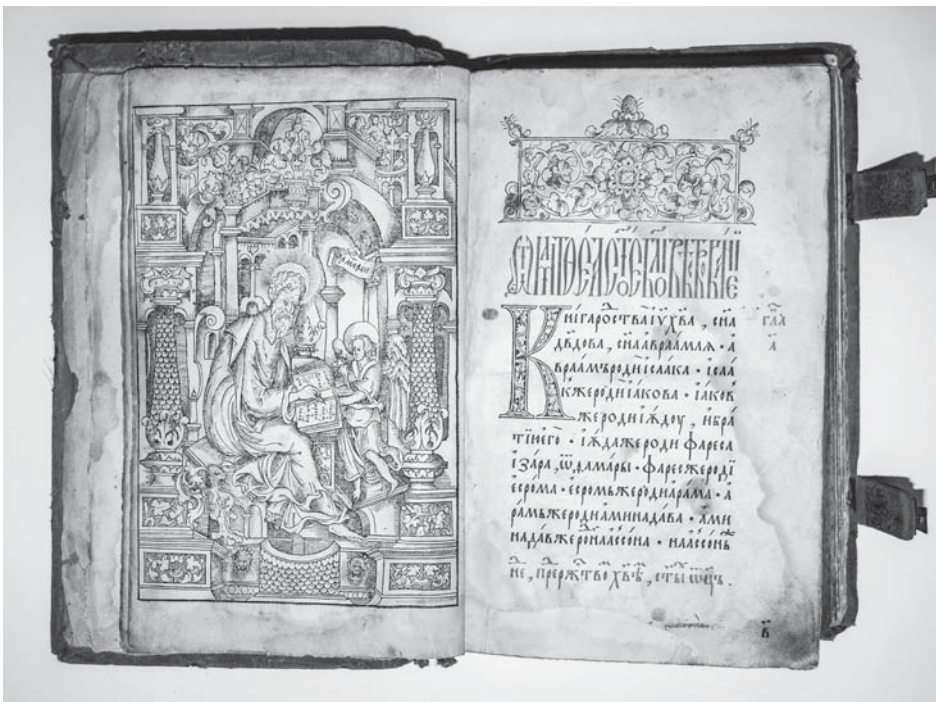 Кни́гарⷭ҇оства і҆ѵ҃хв҃а , сн҃а
дв҃дова , сн҃а а҆враа́млѧ · а҆
враа́мъ родѝ і҆саака · і҆саа́
къ же родѝ і҆а́кова · і҆а́ков
же родѝ і҆ю́доу , и҆ бра
тїю є҆го̀ · і҆ю́да же роди фареса
і҆ за́ра , ѿ ѳ҆ама́ры · фаре́с же родї
є҆срома · є҆сромъ же роди а҆ра́ма · а҆
ра́мъ же роди а҆минада́ва · а҆ми
нада́въ же роди наассо́на · наассо́нъ
гл҃а
а҃
не , пре рⷤ҇ство хв҃ѣ , ст҃ы ѡ҆ц҃ъ .
в҃